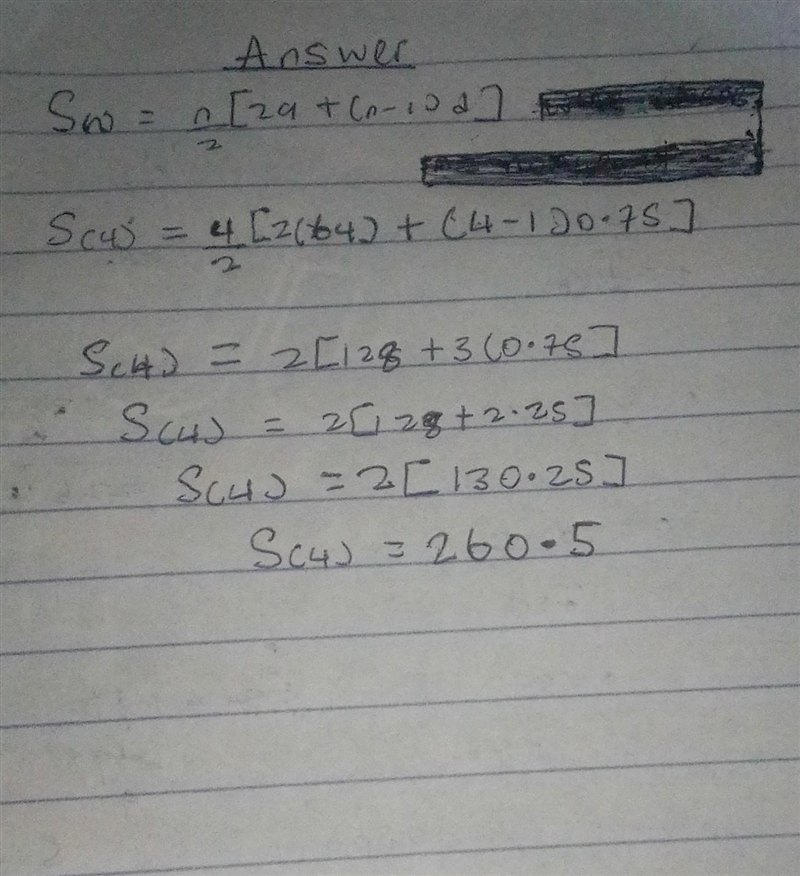 Answer
S(n) = n/2 [2a + (n-1)d]
S(4) = 4/2 [2(64) + (4-1)0.75]
S(4) = 2[128 + 3(0.75]
∴ S(4) = 2[128 + 2.25]
S(4) = 2[130.25]
S(4) = 260.5